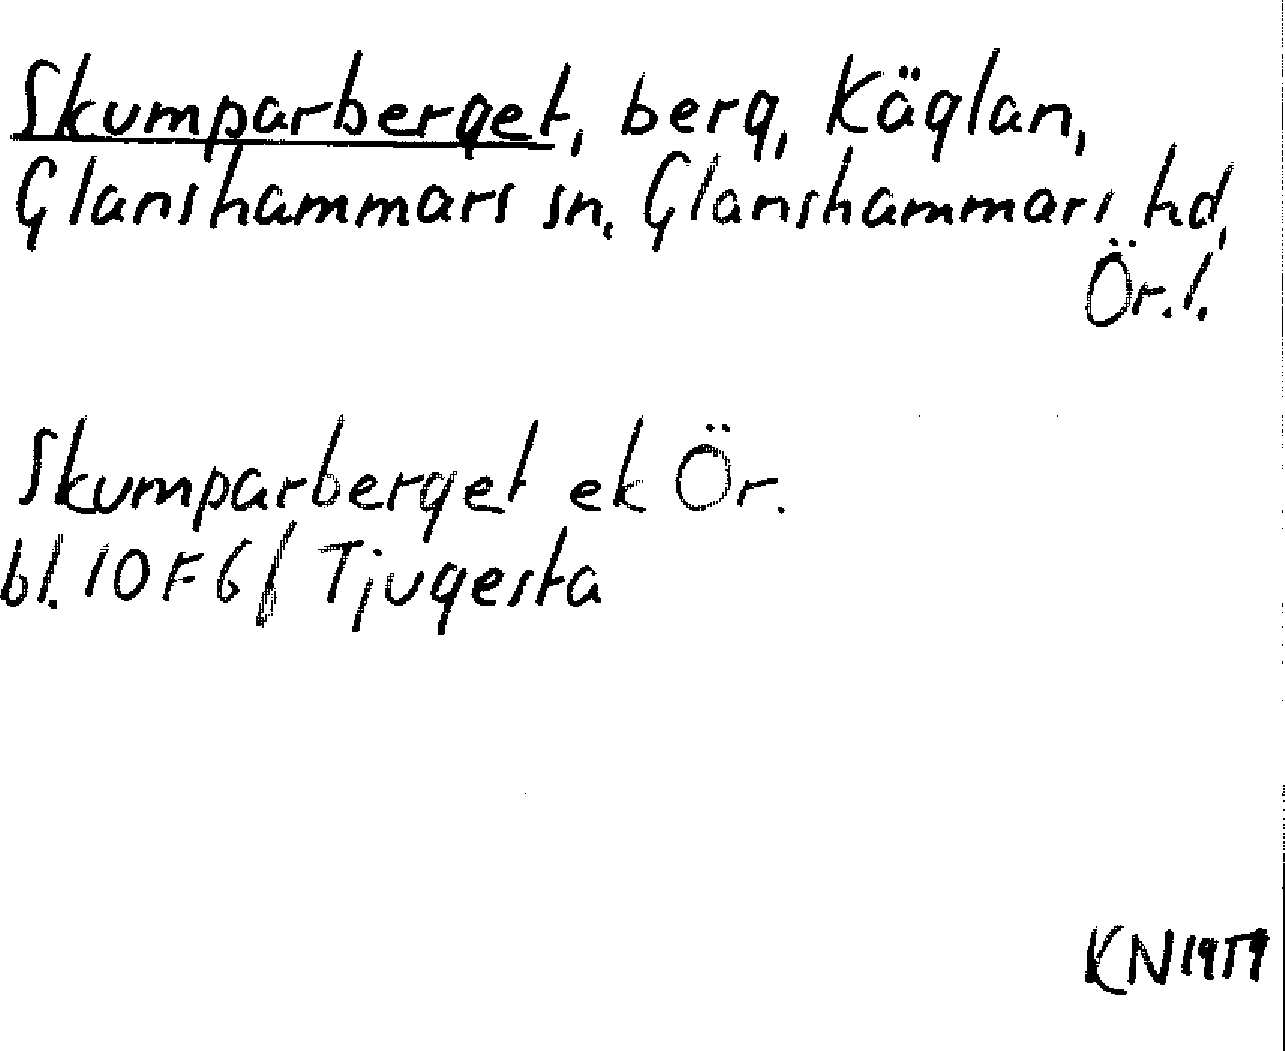 Skumparberget, berg, Käglan,
Glanshammars sn. Glanshammars hd,
Ör.l.
Skumparberget ek Ör.
bl. 10F6f Tjugesta
KN1979